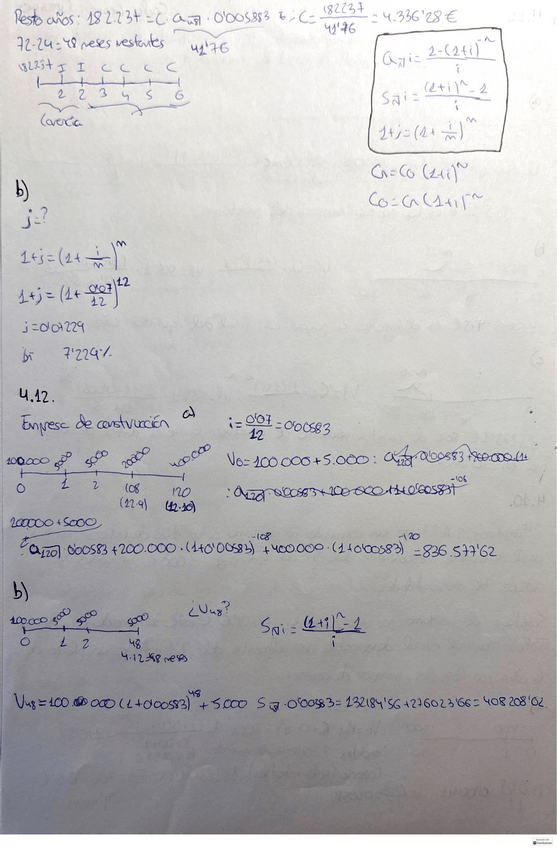 Resto años: 182237 = C · a 48̅| · 0'005883 ; C = 182237 / 41'76 = 4.336'28 €
41'76
72-24 = 48 meses restantes
182237 I I C C C C
1 2 3 4 5 6
Carencia
a n̅| i = 1-(1+i)^-n / i
S n̅| i = (1+i)^n - 1 / i
1+j = (1 + i/m)^m
Cn = Co (1+i)^n
Co = Cn (1+i)^-n
b)
j=?
1+j = (1 + i/m)^m
1+j = (1 + 0'07/12)^12
j = 0'07229
7'229%
4.12.
Empresa de construcción a) i = 0'07/12 = 0'00583
100000 5000 5000 200000 400.000
0 1 2 108 120
(12·9) (12·10)
V0 = 100 000 + 5.000 · a 120̅| 0'00583 + 200.000 · (1+
· a 120̅| 0'00583 + 200 000 · (1+0'00583)^-108
200000 + 5000
· a 120̅| 0'00583 + 200.000 · (1+0'00583)^-108 + 400000 · (1+0'00583)^-120 = 836.577'62
b)
¿U48?
100000 5000 5000 5000
0 1 2 48
4·12=48 meses
S n̅| i = (1+i)^n - 1 / i
V48 = 100 000 (1+0'00583)^48 + 5.000 S · 0'00583 = 132184'56 + 276023'66 = 408 208'02